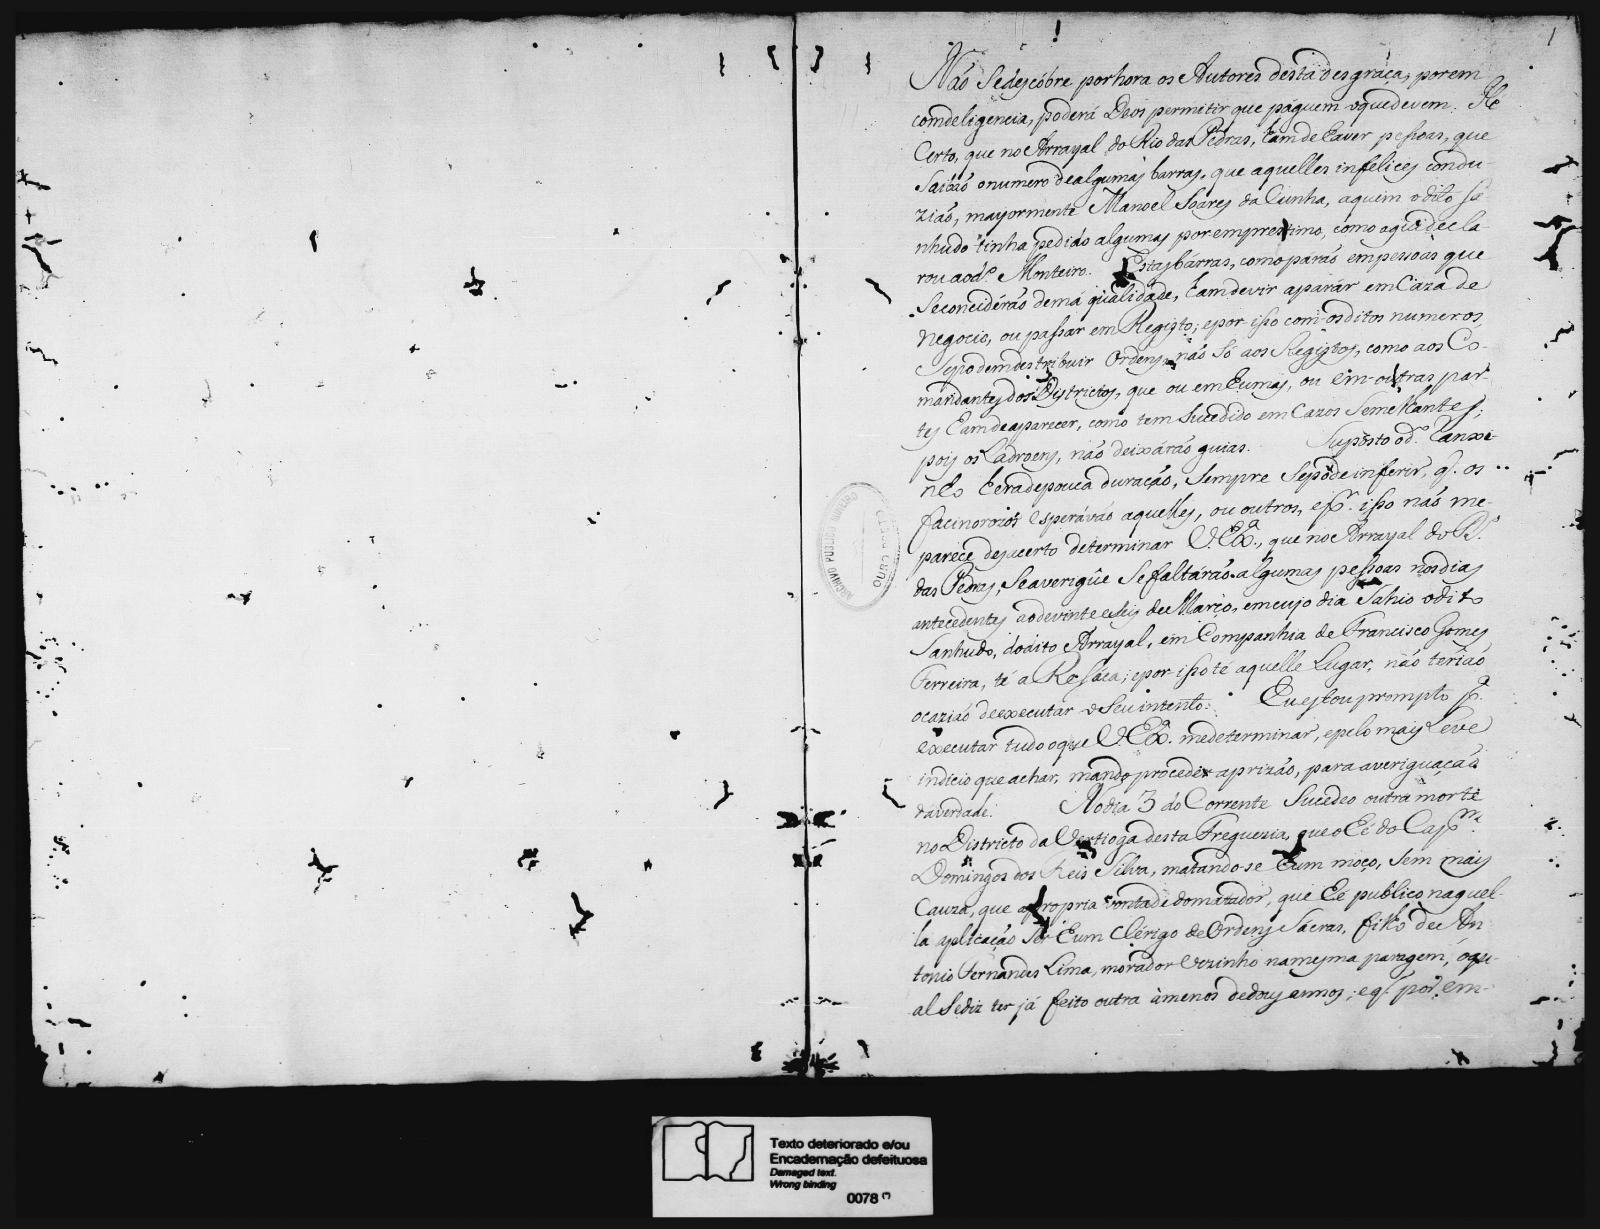 1
Não Sedescobre porhora os Autores desta desgraça, porem
comdeligencia, poderá Deos permitir que paguem oquedevem. He
Certo, que no Arrayal do Rio das Pedras, hamde haver pessoas, que
Saibão o numero dealgumas barras, que aquelles infelices condu-
zião, mayormente Manoel Soares da Cunha, aquem o dito Sa-
nhudo tinha pedido algumas por emprestimo, como aqui decla
rou aod.º Monteiro. Estas barras, como parão em pessoas que
Seconciderão demá qualidade, hamdevir aparár em Caza de
negocio, ou passar em Registo; epor isso com os ditos numeros,
Sepodemdestribuir Ordens, não Só aos Registos, como aos Co-
mandantes dos Destrictos, que ou em humas, ou em outras par-
tes hamdeaparecer, como tem Sucedido em Cazos Semelhantes;
pois os Ladroens, não deixárão guias. Suposto od.º
nho heradepouca duração, Sempre Sepóde inferir, q. os
facinorozos esperávão aquelles, ou outros, ep.ª isso não me
parece desacerto determinar V. Ex.ª, que no Arrayal do R.º
das Pedras, Seaverigûe Sefaltarão algumas pessoas nosdias
antecedentes aodevinte eseis de Março, emcujo dia Sahio o dito
Sanhudo, dodito Arrayal, em Companhia de Francisco Gomes
Ferreira, té a Ressaca; epor isso té aquelle Lugar, não terião
ocazião deexecutár o Seu intento. Eu estou prompto p.ª
executar tudo oque V. Ex.ª medeterminar, epelo mais Leve
indicio que achar, mando proceder aprizão, para averiguação
daverdade. No dia 3 do Corrente Sucedeo outra morte
no Districto da Vertioga desta Freguezia, que o hé do Cap.ᵐ
Domingos dos Reis Silva, matando-se hum moço, Sem mais
Cauza, que apropria vontade domatador, que hé publico naquel-
la aplicação Ser hum Clérigo de Ordens Sacras, filho de An
tonio Fernandes Lima, morador Vezinho namesma paragem, oqu-
al Sediz ter já feito outra àmenos dedous annos; eq. por em-
ARCHIVO PUBLICO MINEIRO
OURO PRETO
Texto deteriorado e/ou
Encadernação defeituosa
Damaged text.
Wrong binding
0078